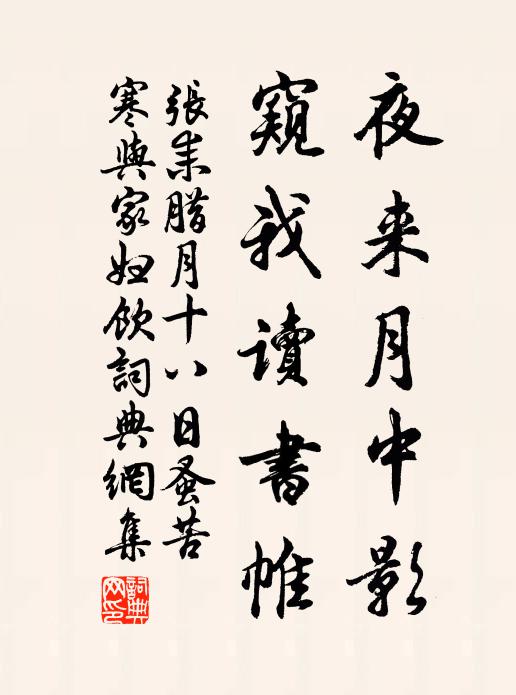 夜来月中影
窺我讀書帷
張耒臘月十八日蚤苦
寒與家妞飲詞典網集
詞典網印